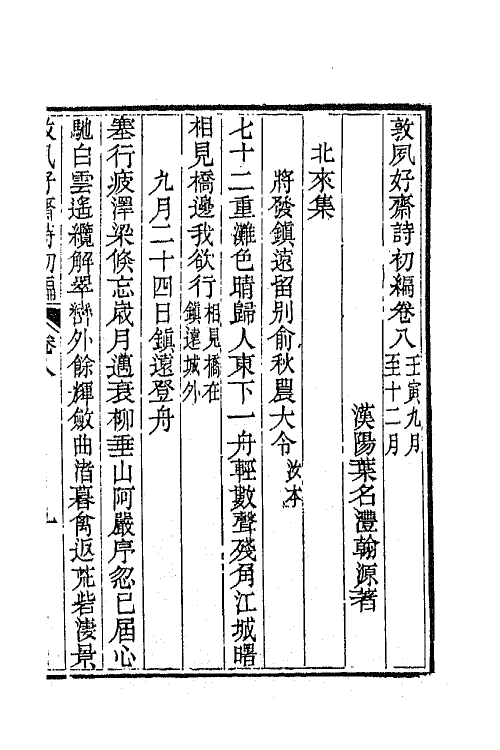 敦夙好齋詩初編卷八 壬寅九月至十二月
漢陽葉名灃翰源著
北來集
將發鎮遠留別俞秋農大令 汝本
七十二重灘色晴歸人東下一舟輕數聲殘角江城曙
相見橋邊我欲行 相見橋在鎮遠城外
九月二十四日鎮遠登舟
塞行疲澤梁倏忘歲月邁衰柳垂山阿嚴序忽已屆心
馳白雲遙纜解翠巒外餘輝斂曲渚暮禽返荒砦淒景
敦夙好齋詩初編 卷八